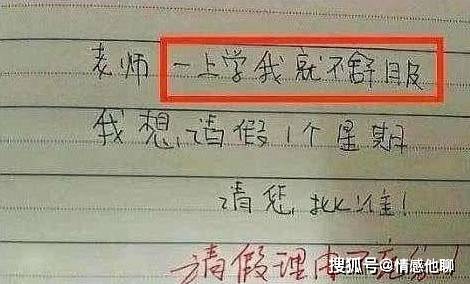 老师 一上学我就不舒服
我想,请假1个星期
请您,批准!
请假理由不充分!
搜狐号@情感他聊